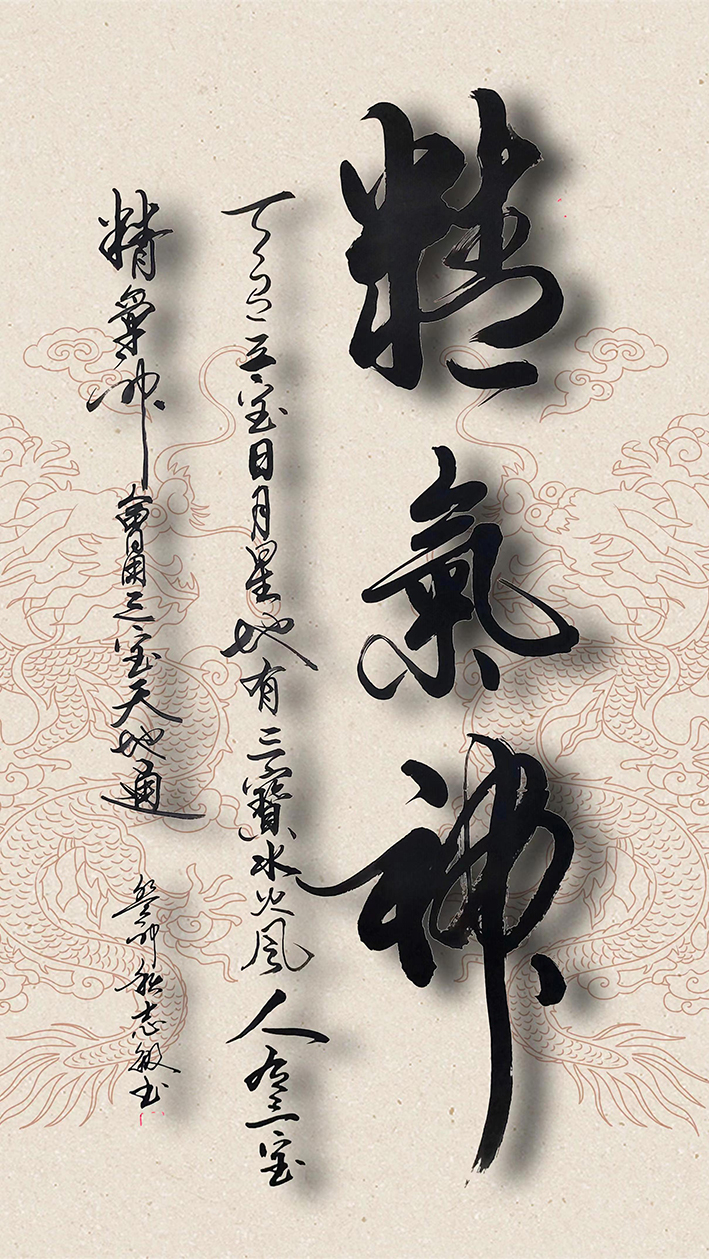 精氣神
天有三宝日月星地有三寳水火風人有三宝
精氣神會用三宝天地通
志敏书